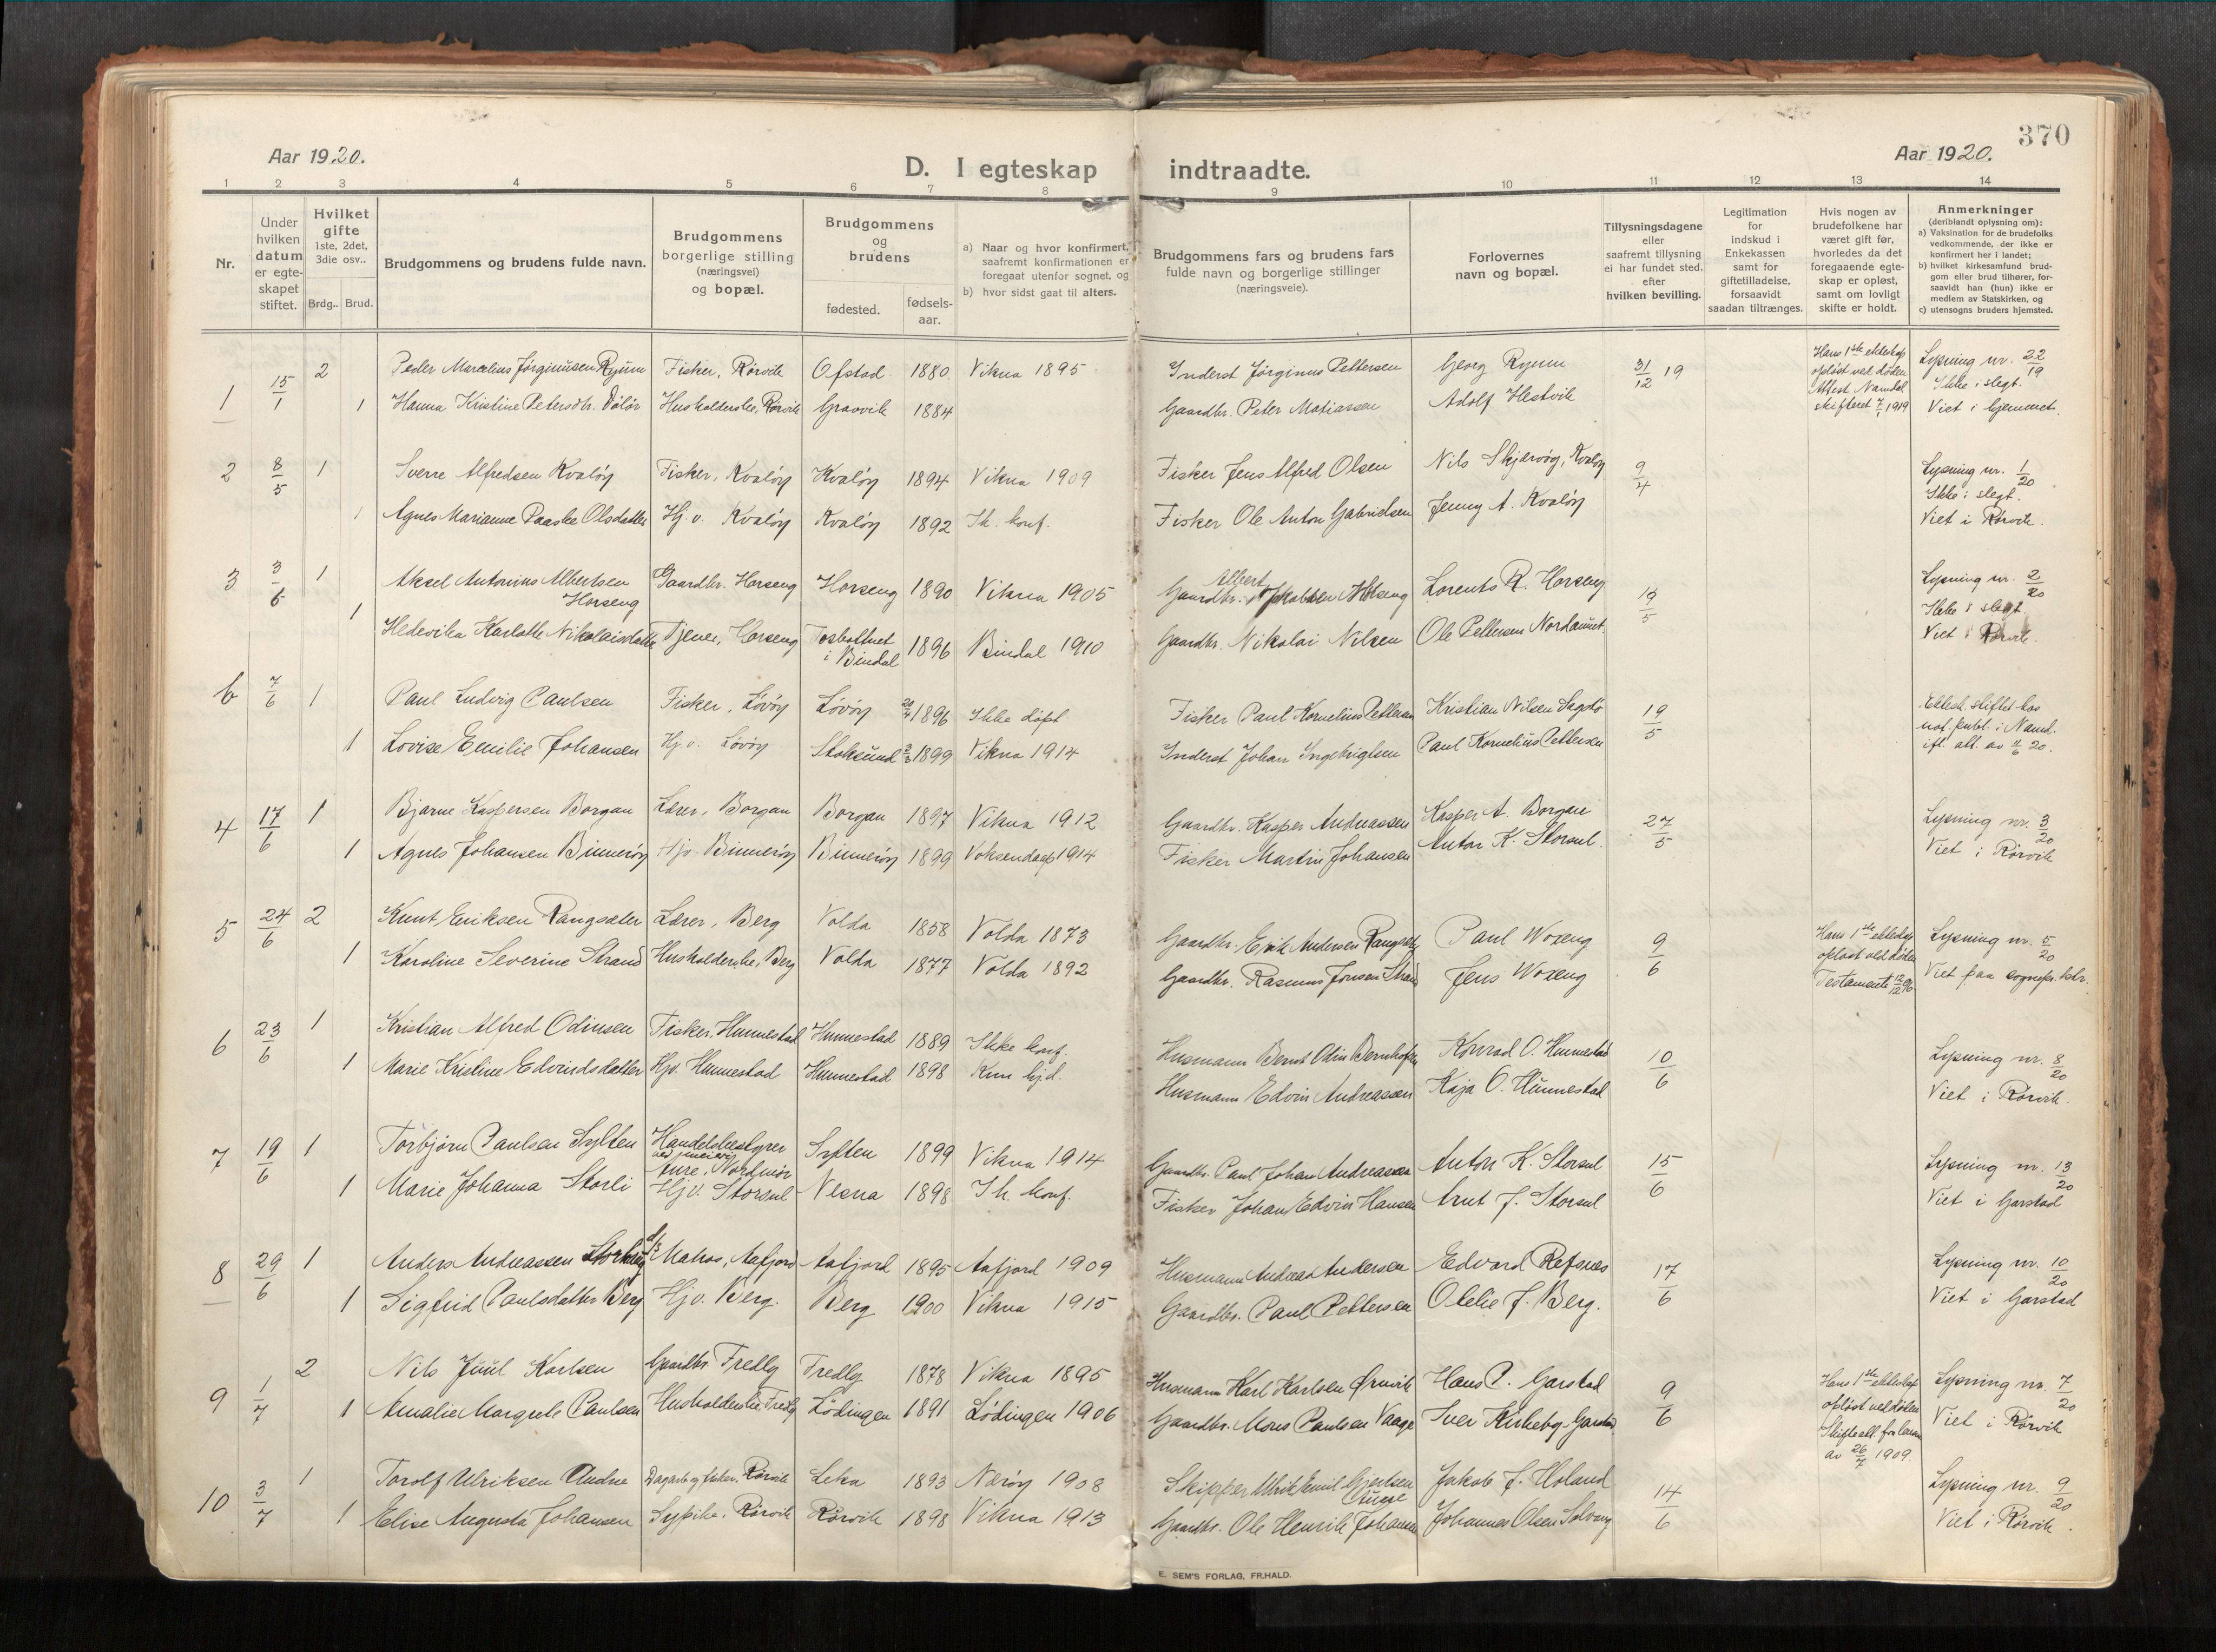 370
Aar 1920.
D. I egteskap indtraadte.
Aar 1920.
1 2 3 4 5 6 7 8 9 10 11 12 13 14
Nr.
Under
hvilken
datum
er egte-
skapet
stiftet.
Hvilket
gifte
1ste, 2det,
3die osv..
Brdg.. Brud.
Brudgommens og brudens fulde navn.
Brudgommens
borgerlige stilling
(næringsvei)
og bopæl.
Brudgommens
og
brudens
fødested.
fødsels-
aar.
a) Naar og hvor konfirmert,
saafremt konfirmationen er
foregaat utenfor sognet, og
b) hvor sidst gaat til alters.
Brudgommens fars og brudens fars
fulde navn og borgerlige stillinger
(næringsveie).
Forlovernes
navn og bopæl.
Tillysningsdagene
eller
saafremt tillysning
ei har fundet sted.
efter
hvilken bevilling.
Legitimation
for
indskud i
Enkekassen
samt for
giftetilladelse,
forsaavidt
saadan tiltrænges.
Hvis nogen av
brudefolkene har
været gift før,
hvorledes da det
foregaaende egte-
skap er opløst,
samt om lovligt
skifte er holdt.
Anmerkninger
(deriblandt oplysning om):
a) Vaksination for de brudefolks
vedkommende, der ikke er
konfirmert her i landet;
b) hvilket kirkesamfund brud-
gom eller brud tilhører, for-
saavidt han (hun) ikke er
medlem av Statskirken, og
c) utensogns bruders hjemsted.
1 15/1 2 Peder Marcelius Jørginusen Ryum Fisker, Rørvik Ofstad 1880 Vikna 1895 Inderst Jørginus Pettersen Georg Ryum 31/12 19
Hans 1ste ekteskap
opløst ved døden
Attest Namdal
skifteret 7/1 1919
Lysning nr. 22/19
Ikke i slegt.
Viet i hjemmet.
1 Hanna Kristine Petersdtr. Husholderske, Rørvik Gravvik 1884 Gaardbr. Peter Matiassen Adolf Hestvik
2 8/5 1 Sverre Alfredsen Kvaløy Fisker, Kvaløy Kvaløy 1894 Vikna 1909 Fisker Jens Alfred Olsen Nils Skjærvøy, Kvaløy 9/4
Lysning nr. 1/20
Ikke i slegt.
Viet i Rørvik.
1 Agnes Marianne Paaske Olsdatter Hj. v. Kvaløy Kvaløy 1892 Ik. konf. Fisker Ole Anton Gabrielsen Jenny A. Kvaløy
3 3/6 1 Aksel Antonius Albertsen
Horseng
Gaardbr. Horseng Horseng 1890 Vikna 1905 Gaardbr. Albert Lorents R. Horseng 13/5
Lysning nr. 2/20
Ikke i slegt
Viet i Rørvik.
1 Hedevika Karlotte Nikolaisdatter Tjener, Horseng Tosbotnet
i Bindal
1896 Bindal 1910 Gaardbr. Nikolai Nilsen Ole Pettersen
6 7/6 1 Paul Ludvig Paulsen Fisker, Løvøy Løvøy 1896 Ikke døpt Fisker Paul Kornelius Pettersen Kristian Nilsen 19/5
Ektesk. stiftet hos
not. publ. i Namd.
ifl. att. av 11/6 20.
1 Lovise Emilie Johansen Hj. v. Løvøy Stoksund 1899 Vikna 1914 Inderst Johan Ingebrigtsen Paul Kornelius Pettersen
4 17/6 1 Bjarne Kaspersen Borgan Lærer, Borgan Borgan 1897 Vikna 1912 Gaardbr. Kasper Andreassen Kasper A. Borgan 27/5
Lysning nr. 3/20
Viet i Rørvik
1 Agnes Johansen Binnerøy Hjv. Binnerøy Binnerøy 1899 Voksendaap 1914 Fisker Martin Johansen Anton K. Storsul.
5 24/6 2 Knut Eriksen Rangsæter Lærer, Berg Volda 1858 Volda 1873 Gaardbr. Erik Andersen Paul Woxeng 9/6
Hans 1ste ekteskap
opløst ved døden
Testamente 12/12
Lysning nr. 5/20
Viet paa sognepr.ktr.
1 Karoline Severine Strand Husholderske, Berg Volda 1877 Volda 1892 Gaardbr. Rasmus Jonsen Strand Jens Woxeng
6 23/6 1 Kristian Alfred Odinsen Fisker, Hunnestad Hunnestad 1889 Ikke konf. Husmann Bernt Odin Konrad O. Hunnestad 10/6
Lysning nr. 8/20
Viet i Rørvik.
1 Marie Kristine Edvindsdatter Hjv. Hunnestad Hunnestad 1898 Kun hjd. Husmann Edvin Andreassen Kaja O. Hunnestad
7 19/6 1 Torbjørn Paulsen Sylten Handelsbestyrer
Aure, Nordmør
Sylten 1899 Vikna 1914 Gaardbr. Paul Johan Andreassen Anton K. Storsul 15/6
Lysning nr. 13/20
Viet i Garstad
1 Marie Johanna Storli Hjv. Storsul Vesna 1898 Ik. konf. Fisker Johan Edvin Hansen Arnt J. Storsul
8 29/6 1 Anders Andreassen Matros, Aafjord Aafjord 1895 Aafjord 1909 Husmann Andreas Andersen Edvard Refsnes 17/6
Lysning nr. 10/20
Viet i Garstad
1 Sigfrid Paulsdatter Berg Hjv. Berg. Berg 1900 Vikna 1915 Gaardbr. Paul Pettersen Otelie J. Berg.
9 1/7 2 Nils Juul Karlsen Gaardbr. Fredly Fredly 1878 Vikna 1895 Husmann Karl Karlsen Ørnvik Hans P. Garstad 9/6
Hans 1ste ekteskap
opløst ved døden
Skifteatt. fra lensm
av 26/7 1909.
Lysning nr. 7/20
Viet i Rørvik
1 Amalie Margrete Paulsen Husholderske, Fredly Lødingen 1891 Lødingen 1906 Gaardbr. Mons Paulsen Vaage Iver Kirkeby-Garstad
10 3/7 1 Torolf Ulriksen Rørvik Leka 1893 Nærøy 1908 Skipper Ulrik Emil Jakob J. Holand 14/6
Lysning nr. 9/20
Viet i Rørvik.
1 Elise Augusta Johansen Sypike, Rørvik Rørvik 1898 Vikna 1913 Gaardbr. Ole Henrik Johansen Johannes Olsen Solvang
E. SEM'S FORLAG, FR.HALD.